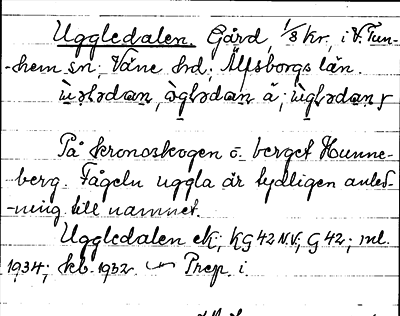 Uggledalen. Gård, 1/8 kr, i V. Tun-
-hem sn; Väne hd; Älfsborgs län.
På kronoskogen o. berget Hunne-
berg. Fågeln uggla är tydligen anled-
-ning till namnet.
Uggledalen ek; KG 42 N.V; G 42; ml.
1934; kb. 1932. Prep. i